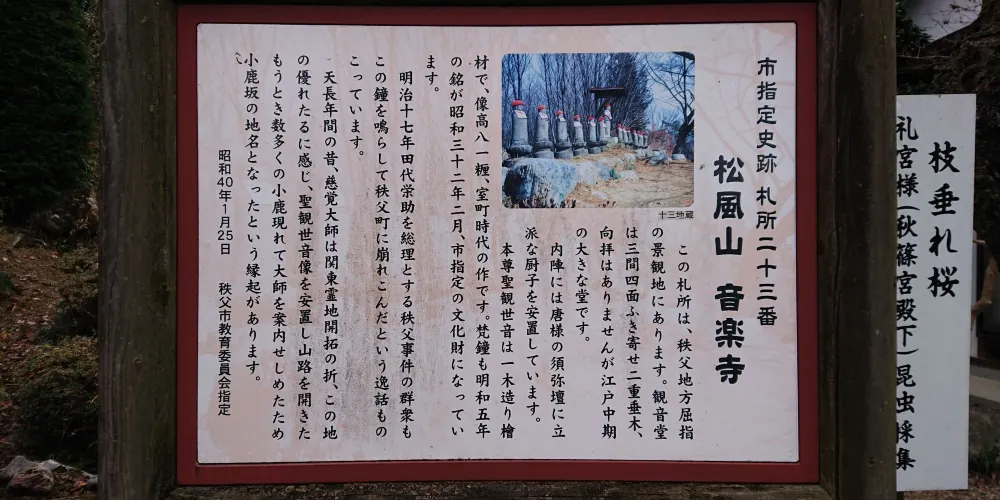 市指定史跡 札所二十三番
松風山 音楽寺
十三地蔵
この札所は、秩父地方屈指
の景観地にあります。観音堂
は三間四面ふき寄せ二重垂木、
向拝はありませんが江戸中期
の大きな堂です。
内陣には唐様の須弥壇に立
派な厨子を安置しています。
本尊聖観世音は一木造り檜
材で、像高八一糎、室町時代の作です。梵鐘も明和五年
の銘が昭和三十二年二月、市指定の文化財になってい
ます。
明治十七年田代栄助を総理とする秩父事件の群衆も
この鐘を鳴らして秩父町に崩れこんだという逸話もの
こっています。
天長年間の昔、慈覚大師は関東霊地開拓の折、この地
の優れたるに感じ、聖観世音像を安置し山路を開きた
もうとき数多くの小鹿現れて大師を案内せしめたため
小鹿坂の地名となったという縁起があります。
昭和40年1月25日 秩父市教育委員会指定
枝垂れ桜
礼宮様(秋篠宮殿下)昆虫採集